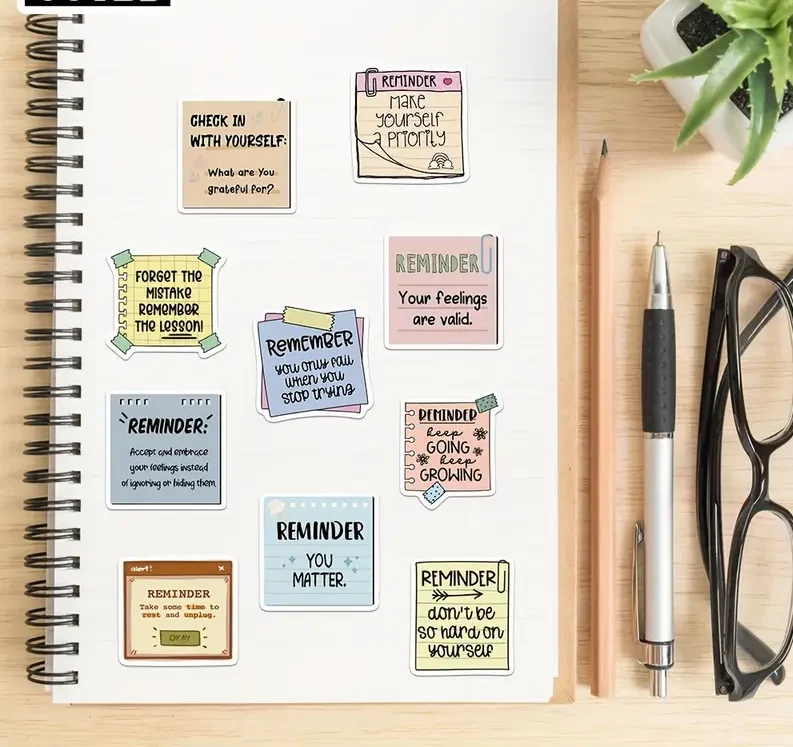 CHECK IN
WITH YOURSELF:
What are you
grateful for?
REMINDER
MAKE
YOURSELF
A PRIORITY
FORGET THE
MISTAKE
REMEMBER
THE LESSON!
REMINDER
Your feelings
are valid.
REMEMBER
YOU ONLY FAIL
WHEN YOU
STOP TRYING
REMINDER:
Accept and embrace
your feelings instead
of ignoring or hiding them.
REMINDER
keep
GOING
keep
GROWING
REMINDER
YOU
MATTER.
alert!
REMINDER
Take some time to
rest and unplug.
OKAY
REMINDER
don't be
so hard on
yourself